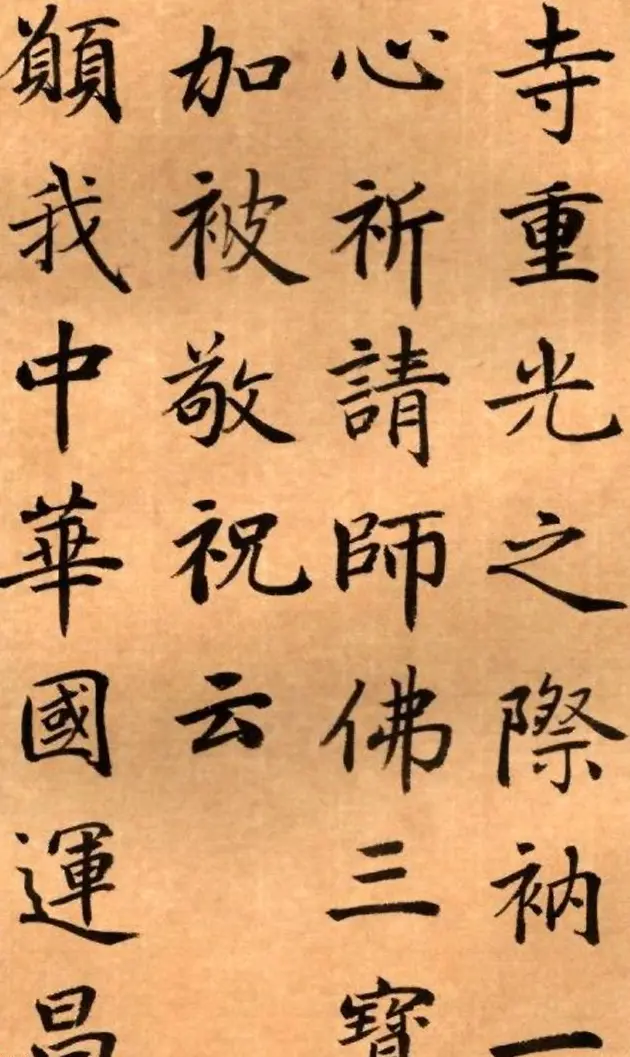 寺重光之際衲一
心祈請師佛三寶
加被敬祝云
願我中華國運昌